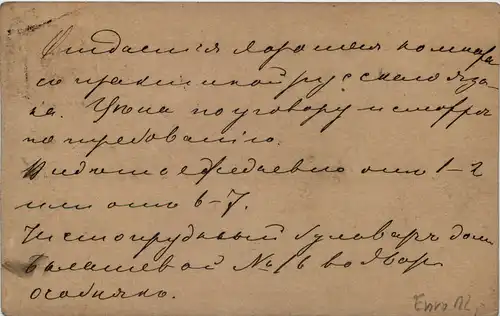 Отдается хорошая комната
со практикой русскаго язы-
ка. Цена по уговору и смотря
по требованию.
Видеть ежедневно от 1-2
или от 6-7.
Чистопрудный бульвар домъ
Балашевой № 16 во дворе
особнякъ.